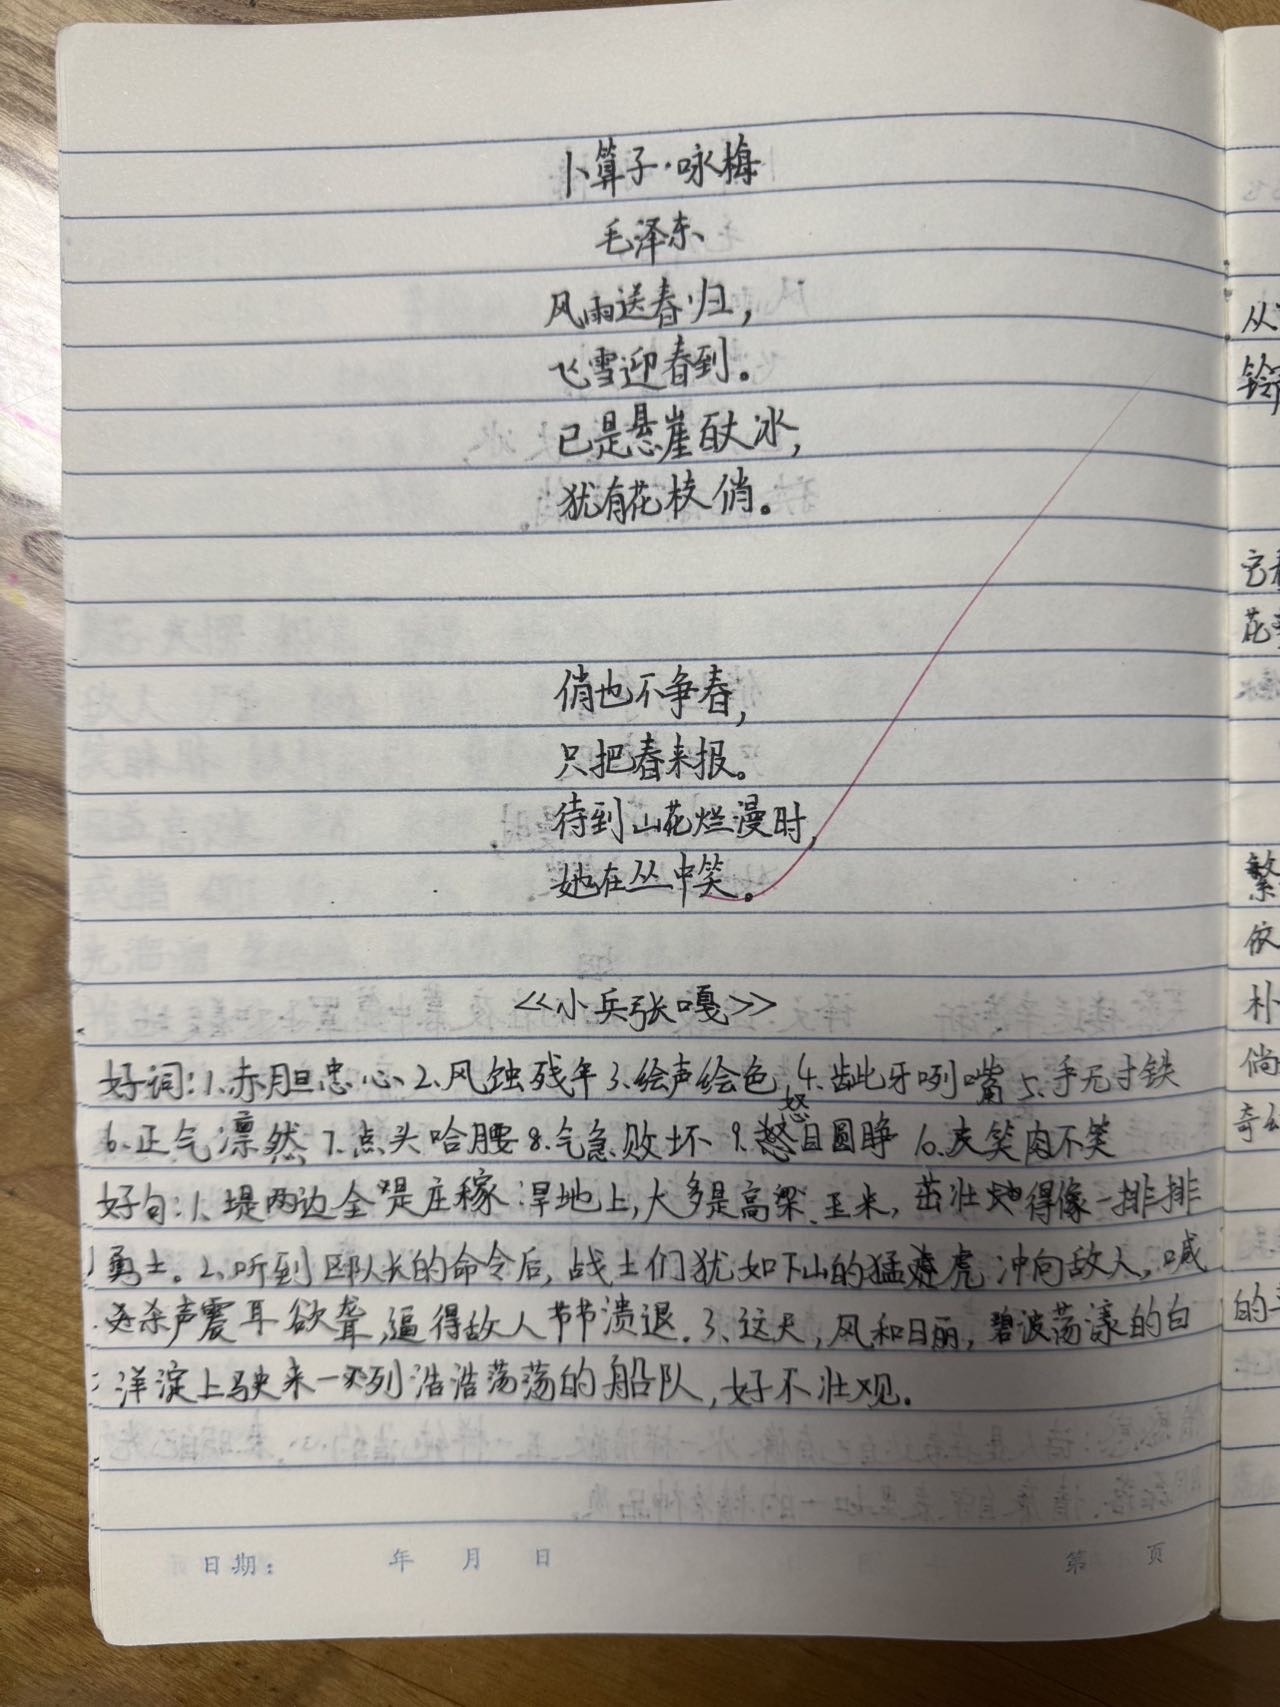 卜算子·咏梅
毛泽东
风雨送春归，
飞雪迎春到。
已是悬崖百丈冰，
犹有花枝俏。
俏也不争春，
只把春来报。
待到山花烂漫时，
她在丛中笑。
<<小兵张嘎>>
好词：1.赤胆忠心 2.风蚀残年 3.绘声绘色 4.龇牙咧嘴 5.手无寸铁
6.正气凛然 7.点头哈腰 8.气急败坏 9.怒目圆睁 10.皮笑肉不笑
好句：1、堤两边全是庄稼 旱地上，大多是高梁、玉米，茁壮地得像一排排
勇士。2、听到区队长的命令后，战士们犹如下山的猛虎冲向敌人，喊
杀声震耳欲聋，逼得敌人节节溃退。3、这天，风和日丽，碧波荡漾的白
洋淀上驶来一列浩浩荡荡的船队，好不壮观。
日期： 年 月 日 第 页
从
铃
花
繁
依
朴
倘
奇
的